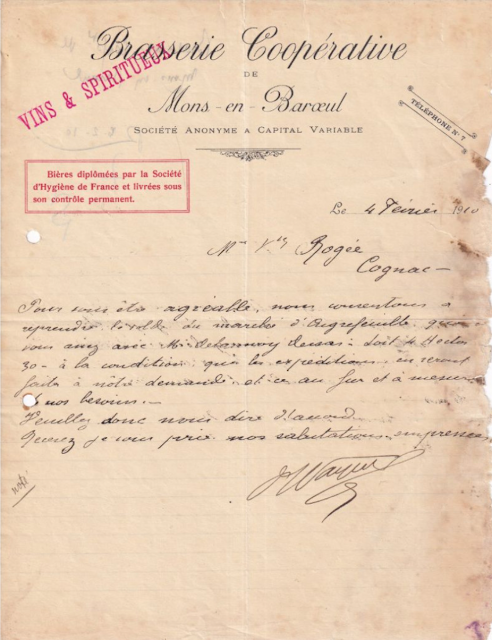 Brasserie Coopérative
DE
Mons-en-Barœul
SOCIÉTÉ ANONYME A CAPITAL VARIABLE
VINS & SPIRITUEUX
TÉLÉPHONE N° 7
Bières diplômées par la Société
d'Hygiène de France et livrées sous
son contrôle permanent.
Le 4 Février 1910
Rogée
Cognac
Pour vous être agréable, nous consentons à
reprendre le solde du marché d'Aigrefeuille que
vous avez avec Mr soit 4 Hectos
30 - à la condition que les expéditions en seront
faites à notre demande et ce au fur et à mesure
de nos besoins.
Veuillez donc nous dire d'accord.
Recevez je vous prie nos salutations empressées
noté